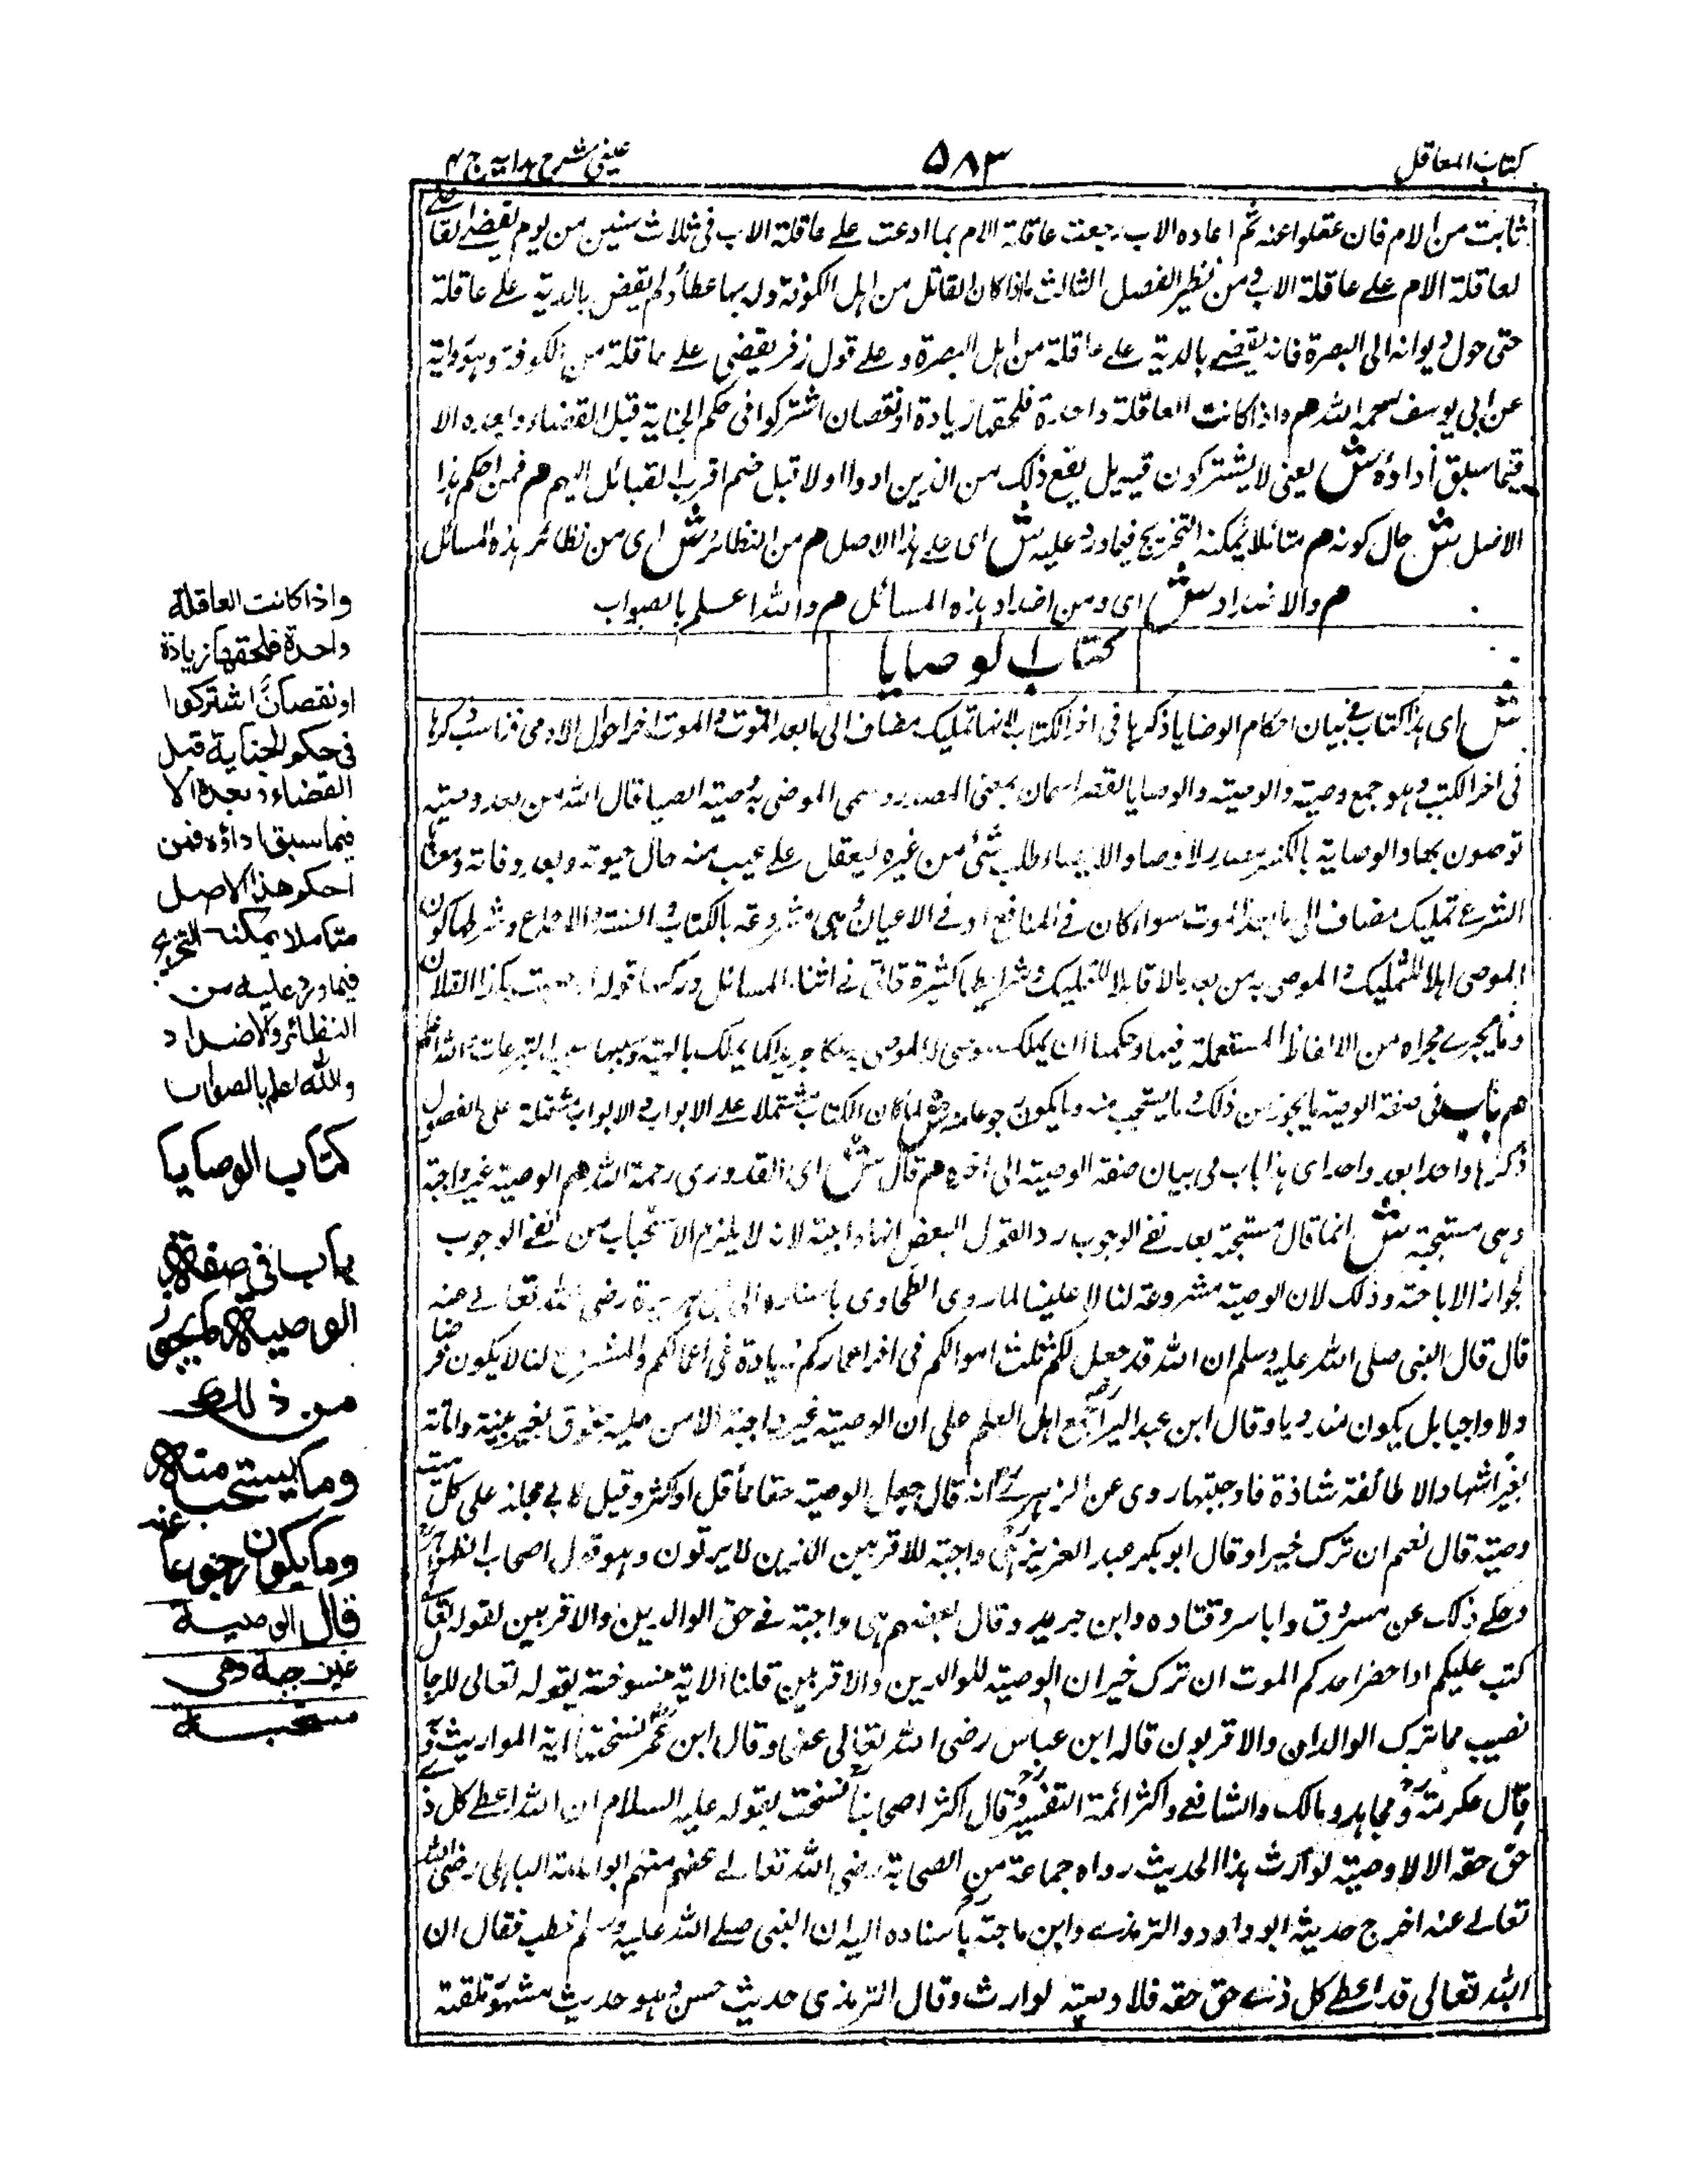 كتاب المعاقل
٥٨٣
عينى شرح هداية ج ٤
ثابت من الام فان عقلوا عنه ثم اعاده الاب رجعت عاقلة الام بما ادعت على عاقلة الاب فى ثلاث سنين من يوم يقضى القا
لعاقلة الام على عاقلة الاب ومن نظير الفصل الثالث ما اذا كان القاتل من اهل الكوفة وله بها عطاء ولم يقض بالدية على عاقلة
حتى حول ديوانه الى البصرة فانه يقضى بالدية على عاقلة من اهل البصرة وعلى قول زفر يقضى على عاقلة من الكوفة وهو رواية
عن ابى يوسف رحمه الله هم واذا كانت العاقلة واحدة فلحقها زيادة او نقصان اشتركوا فى حكم الجناية قبل القضاء وبعده الا
فيما سبق أداؤه ش يعنى لا يشتركون فيه بل يقع ذلك من الذين ادوا اولا قبل ضم اقرب القبائل اليهم هم فمن احكم هذا
الاصل ش حال كونه هم متأملا يمكنه التخريج فيما ورد عليه ش اى على هذا الاصل هم من النظائر ش اى من نظائر هذه المسائل
م والاضداد ش اى ومن اضداد هذه المسائل م والله اعلم بالصواب
كتاب الوصايا
ش اى هذا كتاب فى بيان احكام الوصايا ذكرها فى اخر الكتاب لانها تمليك مضاف الى ما بعد الموت والموت اخر احوال الادمى فناسب ذكرها
فى اخر الكتب وهو جمع وصية والوصية والوصايا القصر اسمان بمعنى المصدر وسمى الموصى به وصية ايضا قال الله من بعد وصية
توصون بها والوصاية بالكسر مصدر الوصا والايصاء طلب شئ من غيره ليفعل على عيب منه حال حيوته وبعد وفاته ومعنا
الشرع تمليك مضاف الى ما بعد الموت سواء كان فى المنافع او فى الاعيان وهى مشروعة بالكتاب والسنة والاجماع وشرطها كون
الموصى اهلا للتمليك والموصى به من بعد مالا قابلا للتمليك وشرايطها كثيرة تاتى فى اثناء المسائل وركنها قوله اوصيت بكذا لفلان
وما يجرى مجراه من الالفاظ المستعملة فيها وحكمها ان يملك الموصى له الموصى به ملكا جديدا كما يملك بالهبة وسببها سبب التبرعات والله اعلم
هم باب فى صفة الوصية ما يجوز من ذلك وما يستحب منه وما يكون رجوعا عنه ش لما كان الكتاب مشتملا على الابواب والابواب مشتملة على الفصول
ذكرها واحدا بعد واحد اى هذا باب فى بيان صفة الوصية الى اخره هم قال ش اى القدورى رحمة الله هم الوصية غير واجبة
وهى مستحبة ش انما قال مستحبة بعد نفى الوجوب ردا لقول البعض انها واجبة لانه لا يلزم الاستحباب من نفى الوجوب
لجواز الاباحة وذلك لان الوصية مشروعة لنا لا علينا لما روى الطحاوى باسناده الى ابى هريرة رضى الله تعالى عنه
قال قال النبى صلى الله عليه وسلم ان الله قد جعل لكم ثلث اموالكم فى اخر اعماركم زيادة فى اعمالكم والمشروع لنا لا يكون فرضا
ولا واجبا بل يكون مندوبا وقال ابن عبد البر اجمع اهل العلم على ان الوصية غير واجبة الا من عليه حقوق بغير بينة وامانة
بغير اشهاد الا طائفة شاذة فاوجبتها روى عن الزهرى انه قال جعل الوصية حقا مما قل او كثر وقيل لابى مجلز على كل ميت
وصية قال نعم ان ترك خيرا وقال ابو بكر عبد العزيز هى واجبة للاقربين الذين لا يرثون وهو قول اصحاب الظواهر
وحكى ذلك عن مسروق واياس وقتاده وابن جرير وقال بعضهم هى واجبة فى حق الوالدين والاقربين لقوله تعالى
كتب عليكم اذا حضر احدكم الموت ان ترك خيرا ن الوصية للوالدين والاقربين قلنا الاية منسوخة بقوله تعالى للرجال
نصيب مما ترك الوالدان والاقربون قاله ابن عباس رضى الله تعالى عنهما وقال ابن عمر نسختها اية المواريث وبه
قال عكرمة ومجاهد ومالك والشافعى واكثر ائمة التفسير وقال اكثر اصحابنا نسخت بقوله عليه السلام ان الله اعطى كل ذى
حق حقه الا لا وصية لوارث هذا الحديث رواه جماعة من الصحابة رضى الله تعالى عنهم منهم ابو امامة الباهلى رضى الله
تعالى عنه اخرج حديثه ابو داود والترمذى وابن ماجة باسناده اليه ان النبى صلى الله عليه وسلم خطب فقال ان
الله تعالى قد اعطى كل ذى حق حقه فلا وصية لوارث وقال الترمذى حديث حسن وهو حديث مشهور تلقته
واذا كانت العاقلة
واحدة فلحقها زيادة
او نقصان اشتركوا
فى حكم الجناية قبل
القضاء وبعده الا
فيما سبق اداؤه فمن
احكم هذا الاصل
متأملا يمكنه التخريج
فيما ورد عليه من
النظائر والاضداد
والله اعلم بالصواب
كتاب الوصايا
باب فى صفة
الوصية ما يجوز
من ذلك
وما يستحب منه
وما يكون رجوعا عنه
قال الوصية
غير واجبة وهى
مستحبة